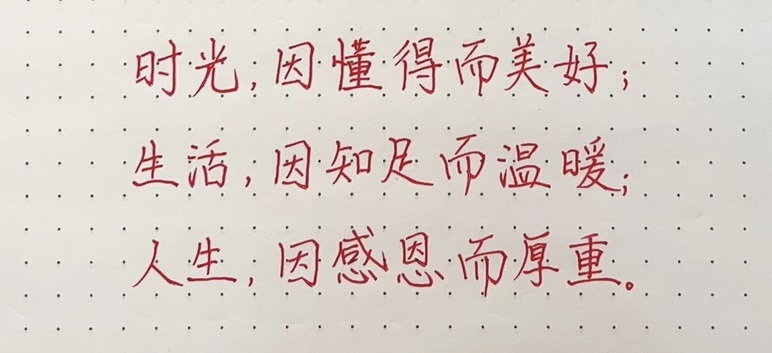 时光,因懂得而美好;
生活,因知足而温暖;
人生,因感恩而厚重。